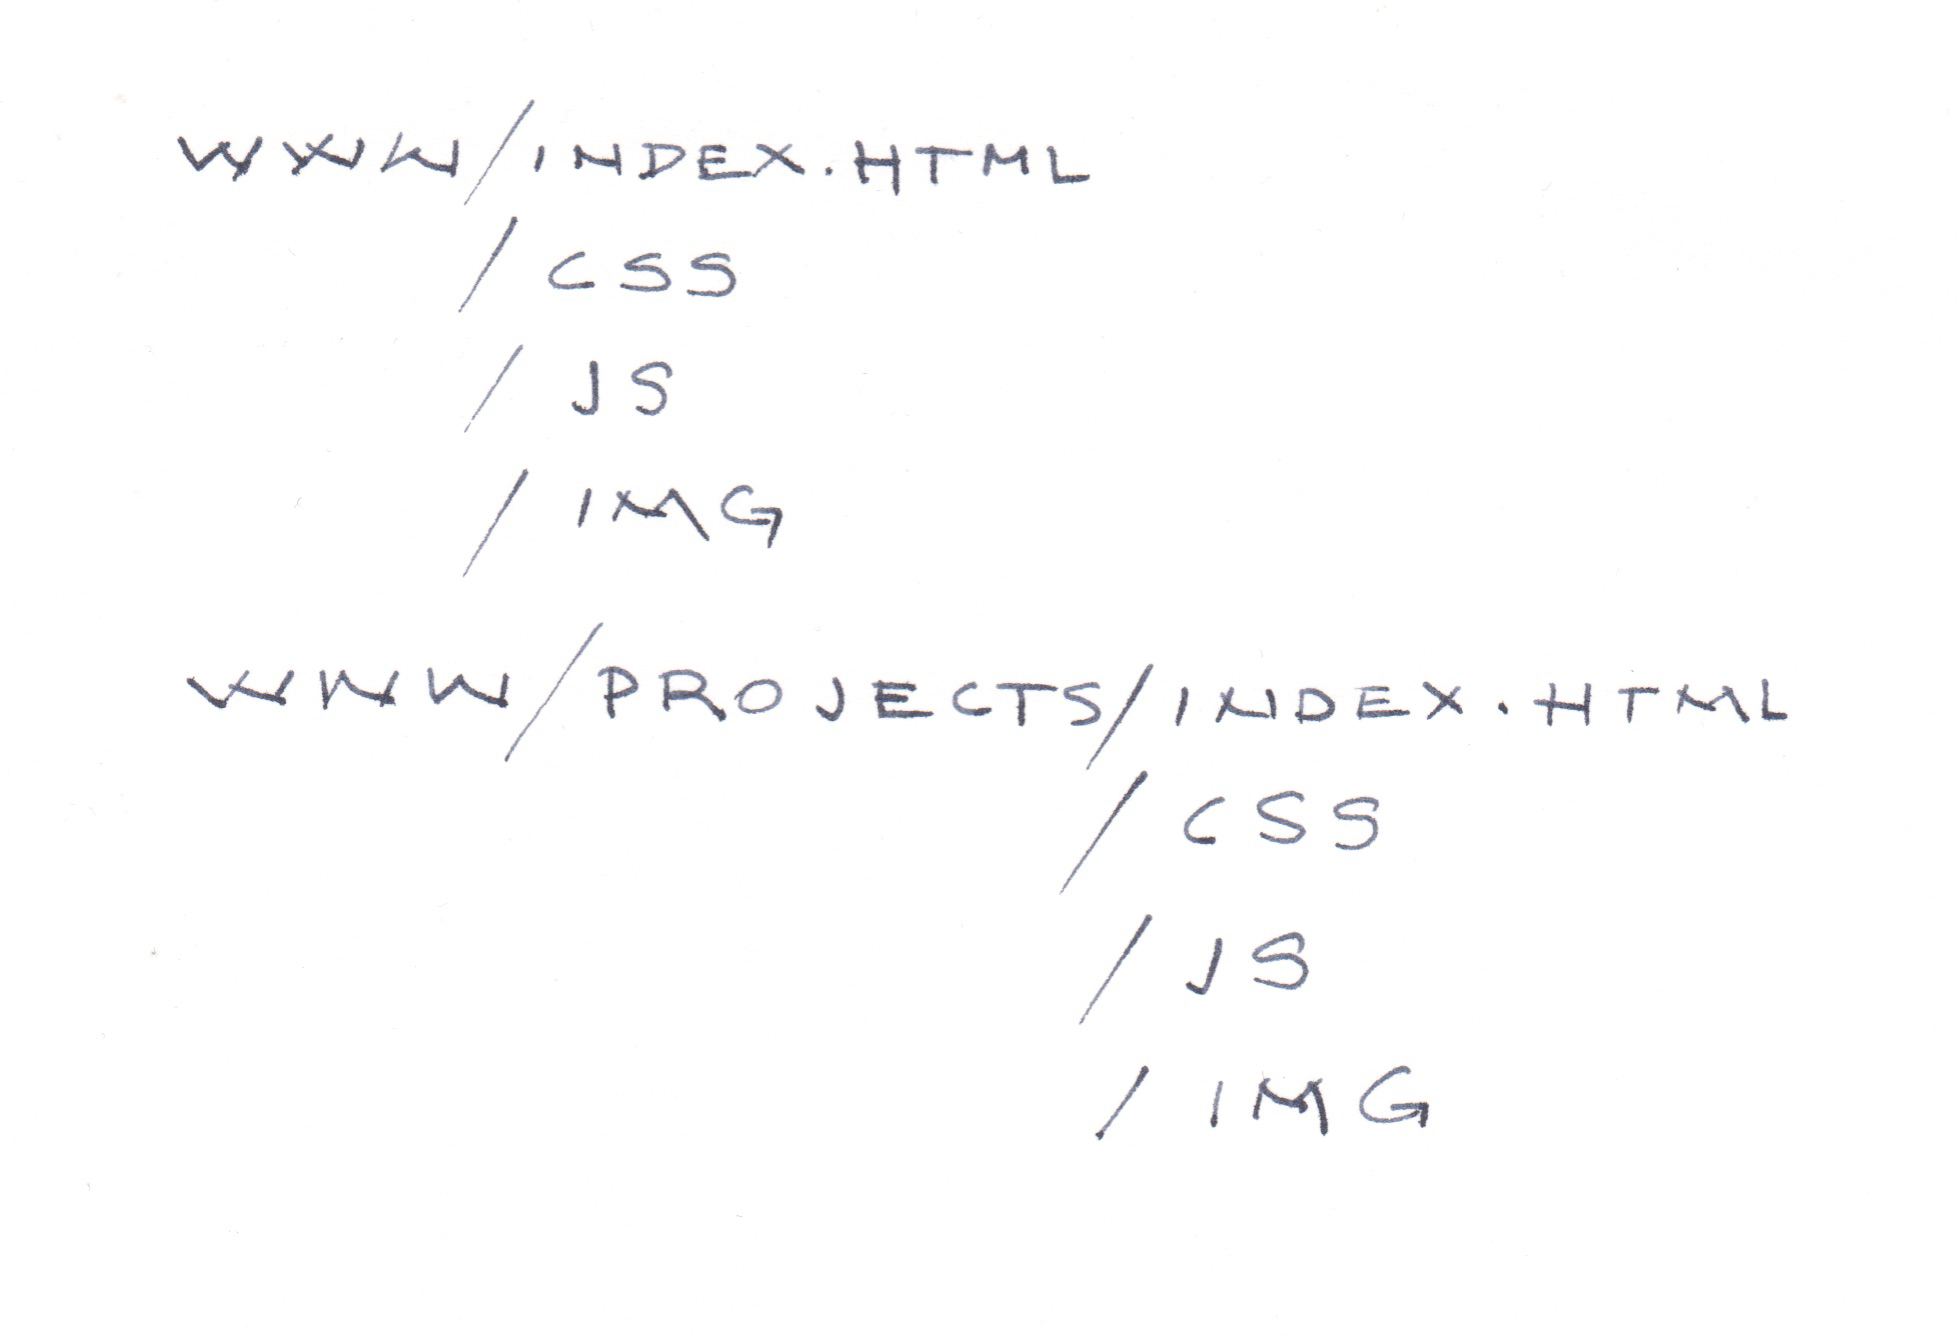 WWW/INDEX.HTML
/CSS
/JS
/IMG
WWW/PROJECTS/INDEX.HTML
/CSS
/JS
/IMG